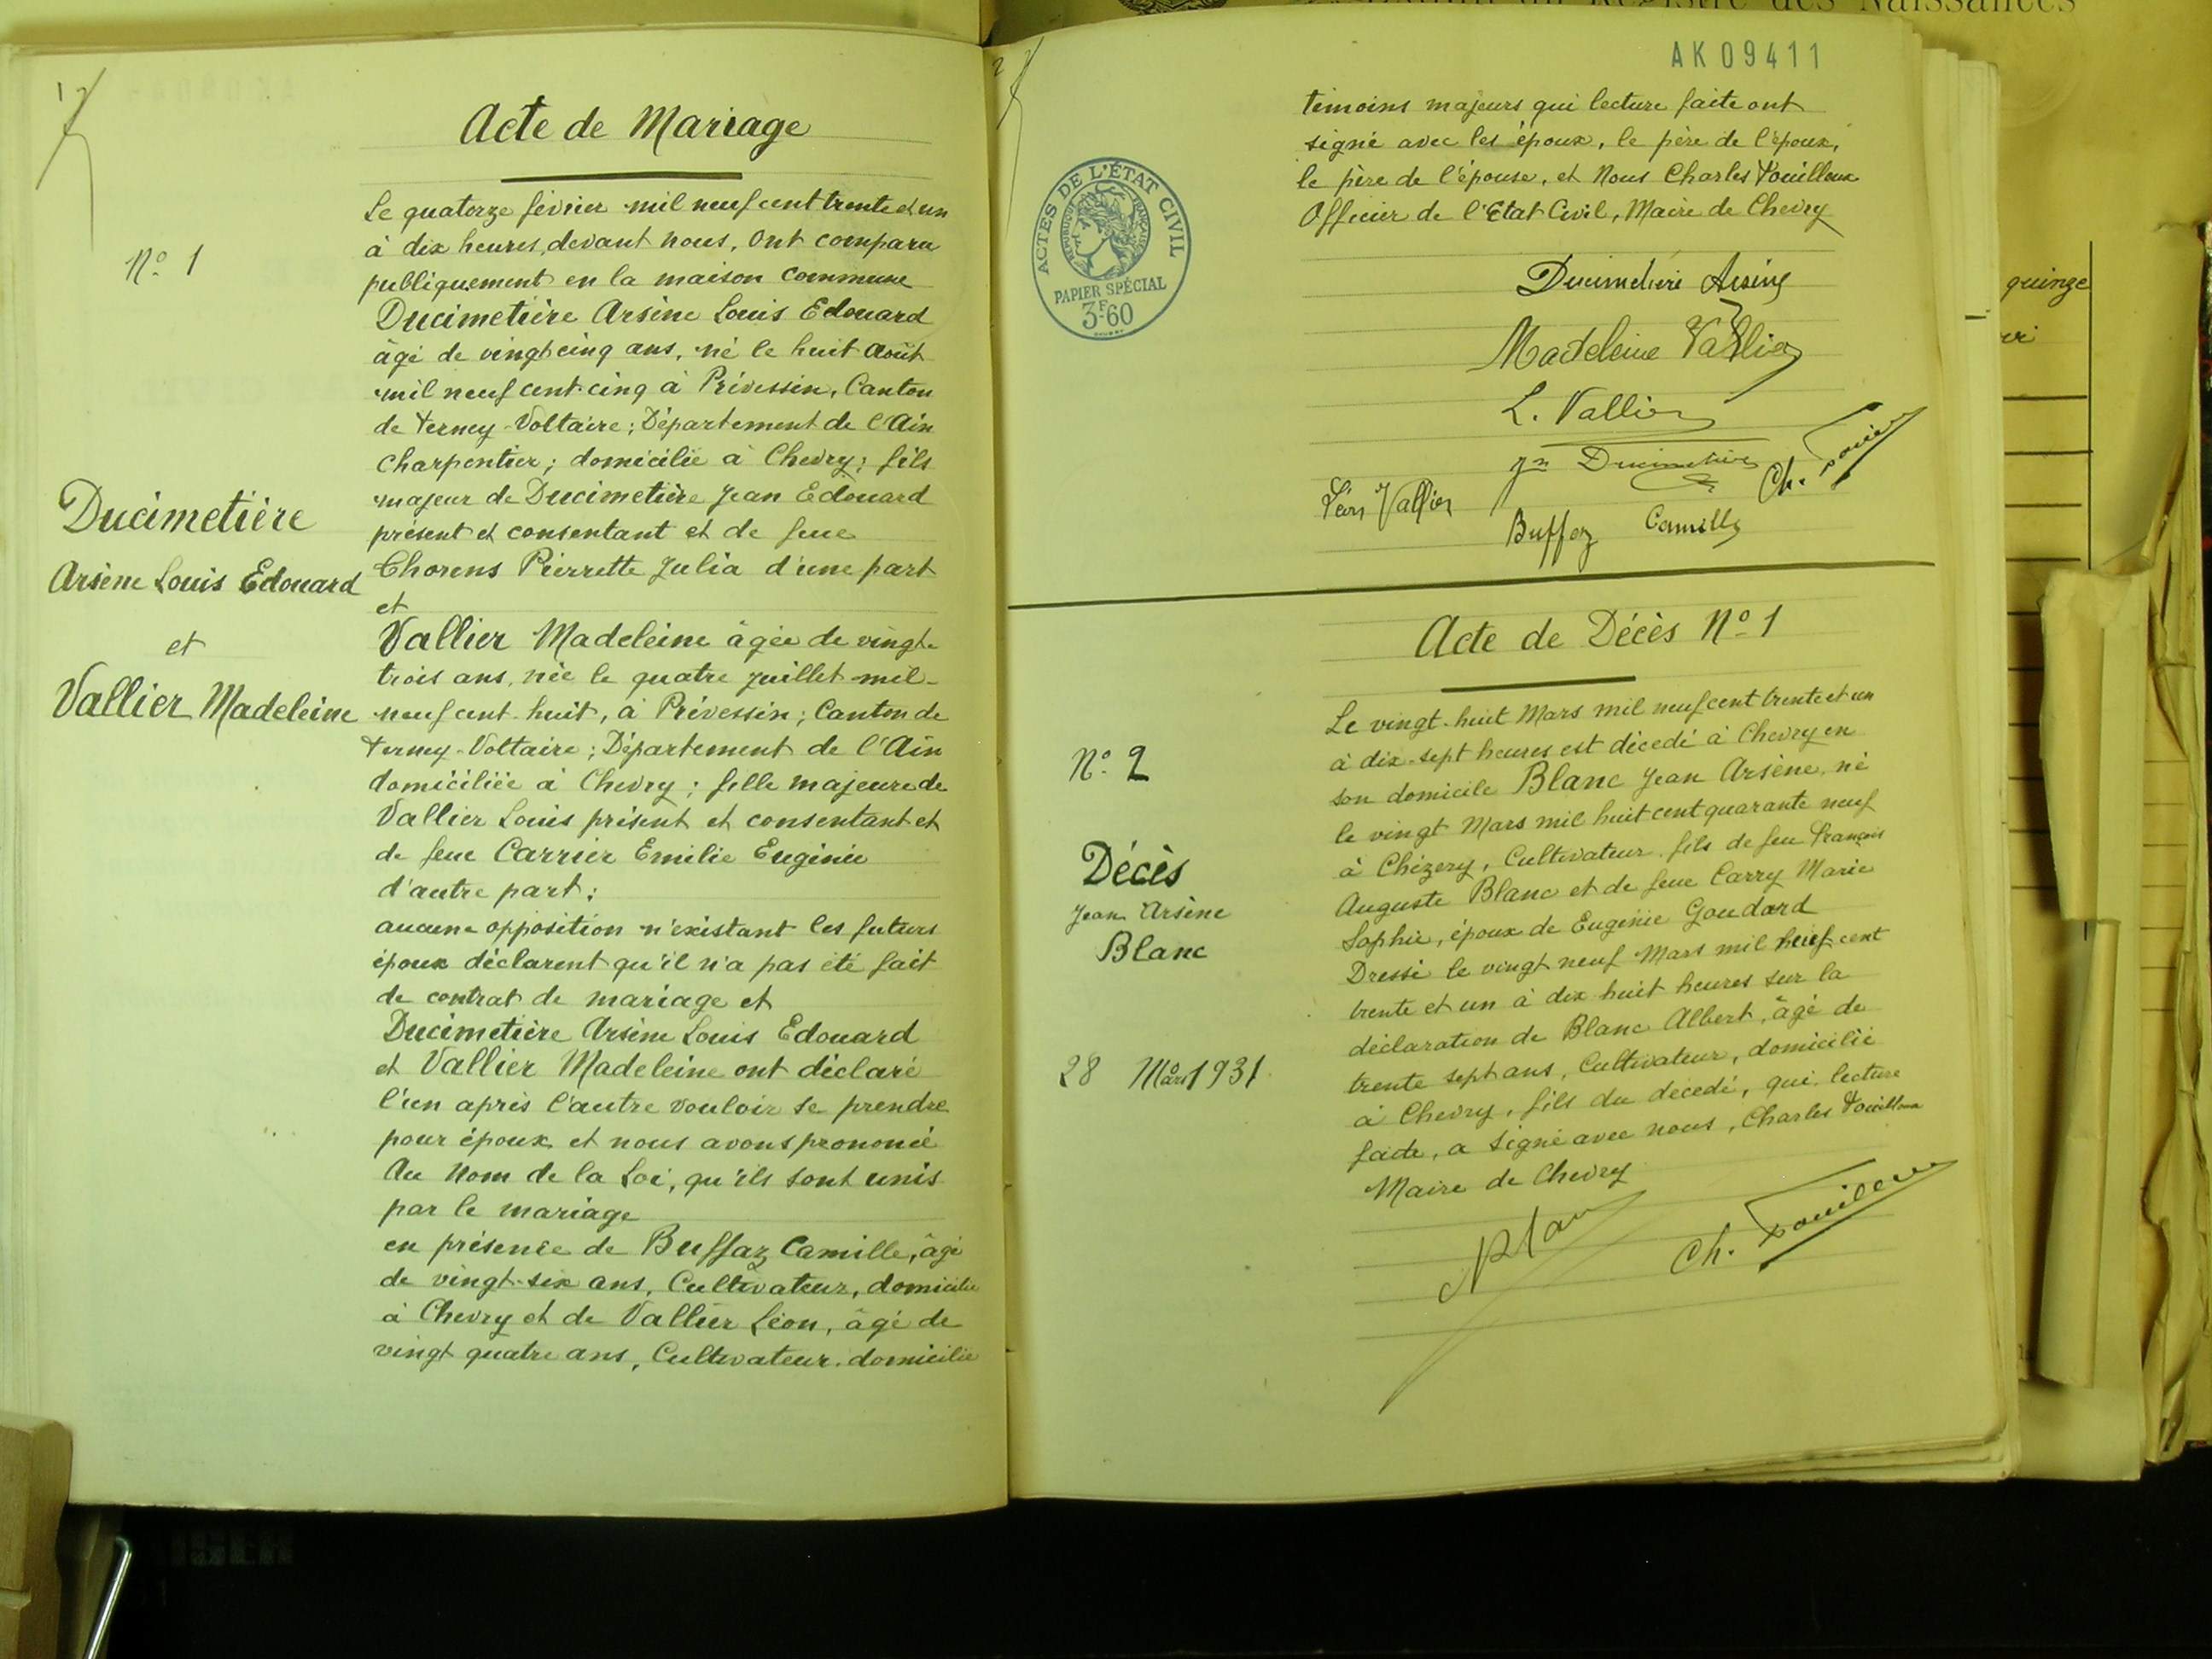 Acte de Mariage
Le quatorze février mil neuf cent trente et un
N° 1
à dix heures, devant nous, ont comparu
publiquement en la maison commune
Ducimetière Arsène Louis Edouard
âgé de vingt cinq ans, né le huit août
mil neuf cent cinq à Prévessin, Canton
de Ferney-Voltaire; Département de l'Ain
Charpentier; domicilié à Chevry; fils
majeur de Ducimetière Jean Edouard
présent et consentant et de feue
Chorens Pierrette Julia d'une part
et
Vallier Madeleine âgée de vingt-
trois ans, née le quatre juillet mil-
neuf cent huit, à Prévessin; Canton de
Ferney-Voltaire; Département de l'Ain
domiciliée à Chevry; fille majeure de
Vallier Louis présent et consentant et
de feue Carrier Emilie Eugénie
d'autre part;
aucune opposition n'existant les futurs
époux déclarent qu'il n'a pas été fait
de contrat de mariage et
Ducimetière Arsène Louis Edouard
et Vallier Madeleine ont déclaré
l'un après l'autre vouloir se prendre
pour époux et nous avons prononcé
Au Nom de la Loi, qu'ils sont unis
par le mariage
en présence de Buffaz Camille, âgé
de vingt-six ans, Cultivateur, domicilié
à Chevry et de Vallier Léon, âgé de
vingt quatre ans, Cultivateur domicilié
Ducimetière
Arsène Louis Edouard
et
Vallier Madeleine
Extrait du Registre des Naissances
AK09411
témoins majeurs qui lecture faite ont
signé avec les époux, le père de l'époux,
le père de l'épouse, et Nous Charles Fouilloux
Officier de l'Etat Civil, Maire de Chevry
ACTES DE L'ÉTAT CIVIL
RÉPUBLIQUE FRANÇAISE
PAPIER SPÉCIAL
3F60
Ducimetière Arsène
Madeleine Vallier
L. Vallier
Jn Ducimetière
Ch.
Léon Vallier
Buffaz Camille
Acte de Décès N° 1
Le vingt-huit Mars mil neuf cent trente et un
à dix-sept heures est décedé à Chevry en
son domicile Blanc Jean Arsène, né
le vingt Mars mil huit cent quarante neuf
à Chézery, Cultivateur fils de feu François
Auguste Blanc et de feue Carry Marie
Sophie, époux de Eugénie Goudard
Dressé le vingt neuf Mars mil neuf cent
trente et un à dix huit heures sur la
déclaration de Blanc Albert, âgé de
trente sept ans, Cultivateur, domicilié
à Chevry, fils du décedé, qui, lecture
faite, a signé avec nous, Charles Fouilloux
Maire de Chevry
N° 2
Décès
Jean Arsène
Blanc
28 Mars 1931
Blanc
Ch. Fouilloux
quinze